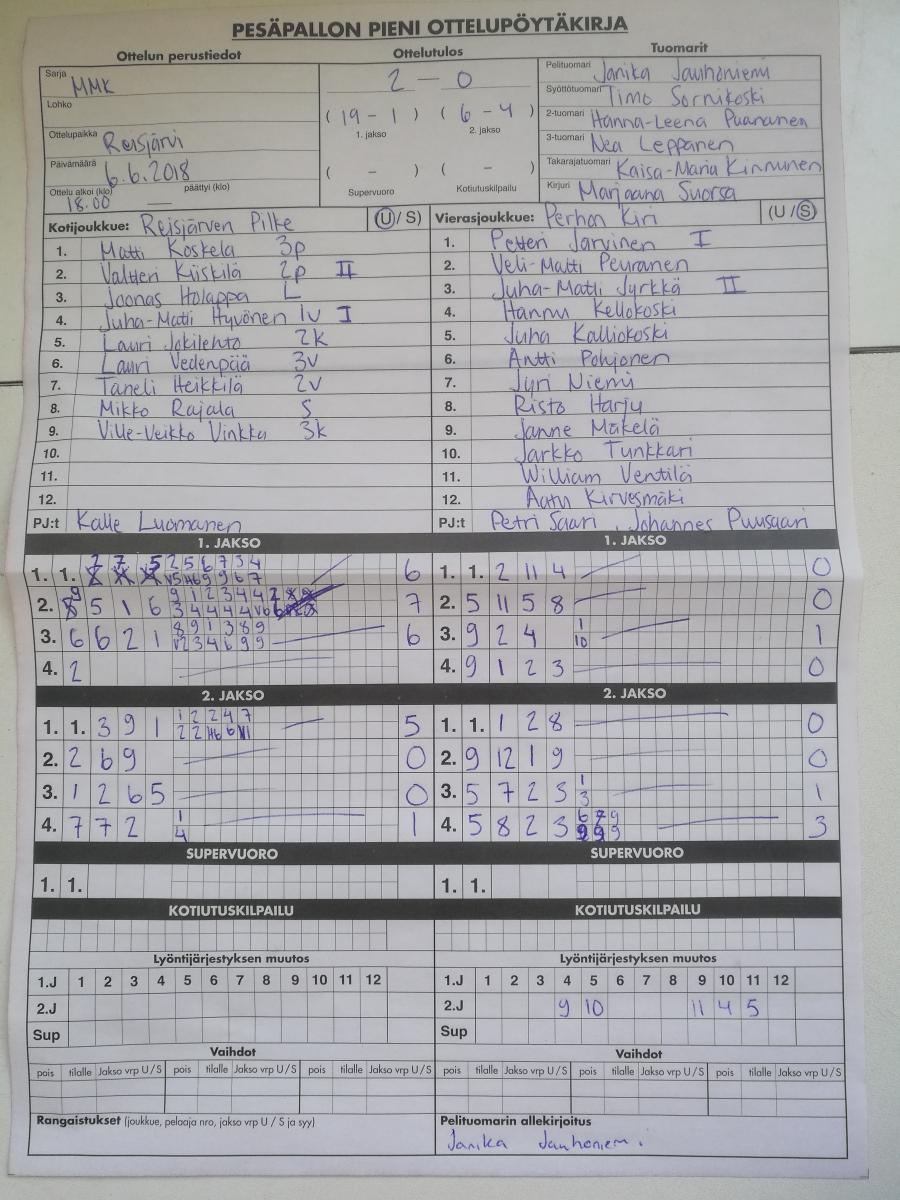 PESÄPALLON PIENI OTTELUPÖYTÄKIRJA
Ottelun perustiedot
Ottelutulos
Tuomarit
Sarja MMK
Lohko
Ottelupaikka Reisjärvi
Päivämäärä 6.6.2018
Ottelu alkoi (klo) 18.00 päättyi (klo) —
2 – 0
( 19 – 1 ) ( 6 – 4 )
1. jakso 2. jakso
( – ) ( – )
Supervuoro Kotiutuskilpailu
Pelituomari Janika Jauhoniemi
Syöttötuomari Timo Sornikoski
2-tuomari Hanna-Leena Puananen
3-tuomari Nea Leppänen
Takarajatuomari Kaisa-Maria Kinnunen
Kirjuri Marjaana Suorsa
Kotijoukkue: Reisjärven Pilke (U/S)
1. Matti Koskela 3p
2. Valtteri Kiiskilä 2p II
3. Joonas Holappa L
4. Juha-Matti Hyvönen 1v I
5. Lauri Jokilehto 2k
6. Lauri Vedenpää 3v
7. Taneli Heikkilä 2v
8. Mikko Rajala S
9. Ville-Veikko Vinkka 3k
10.
11.
12.
PJ:t Kalle Luomanen
Vierasjoukkue: Perhon Kiri (U/S)
1. Petteri Jarvinen I
2. Veli-Matti Peuranen
3. Juha-Matti Jyrkkä II
4. Hannu Kellokoski
5. Juha Kalliokoski
6. Antti Pohjonen
7. Jyri Niemi
8. Risto Harju
9. Janne Mäkelä
10. Jarkko Tunkkari
11. William Ventilä
12. Aatu Kirvesmäki
PJ:t Petri Saari, Johannes Puusaari
1. JAKSO
1. 1. 2 7 5 2 5 6 7 3 4 6
2. 5 1 6 7
3. 6 6 2 1 8 9 1 3 8 9 6
V2 3 4 6 9 9
4. 2
1. JAKSO
1. 1. 2 11 4 0
2. 5 11 5 8 0
3. 9 2 4 1 1
10
4. 9 1 2 3 0
2. JAKSO
1. 1. 3 9 1 1 2 2 4 7 5
2. 2 6 9 0
3. 1 2 6 5 0
4. 7 7 2 1 1
4
2. JAKSO
1. 1. 1 2 8 0
2. 9 12 1 9 0
3. 5 7 2 3 1 1
3
4. 5 8 2 3 6 7 9 3
9 9 9
SUPERVUORO
1. 1.
SUPERVUORO
1. 1.
KOTIUTUSKILPAILU
KOTIUTUSKILPAILU
Lyöntijärjestyksen muutos
1.J 1 2 3 4 5 6 7 8 9 10 11 12
2.J
Sup
Lyöntijärjestyksen muutos
1.J 1 2 3 4 5 6 7 8 9 10 11 12
2.J 9 10 11 4 5
Sup
Vaihdot
pois tilalle Jakso vrp U/S pois tilalle Jakso vrp U/S pois tilalle Jakso vrp U/S
Vaihdot
pois tilalle Jakso vrp U/S pois tilalle Jakso vrp U/S pois tilalle Jakso vrp U/S
Rangaistukset (joukkue, pelaaja nro, jakso vrp U / S ja syy)
Pelituomarin allekirjoitus
Janika Jauhoniem.